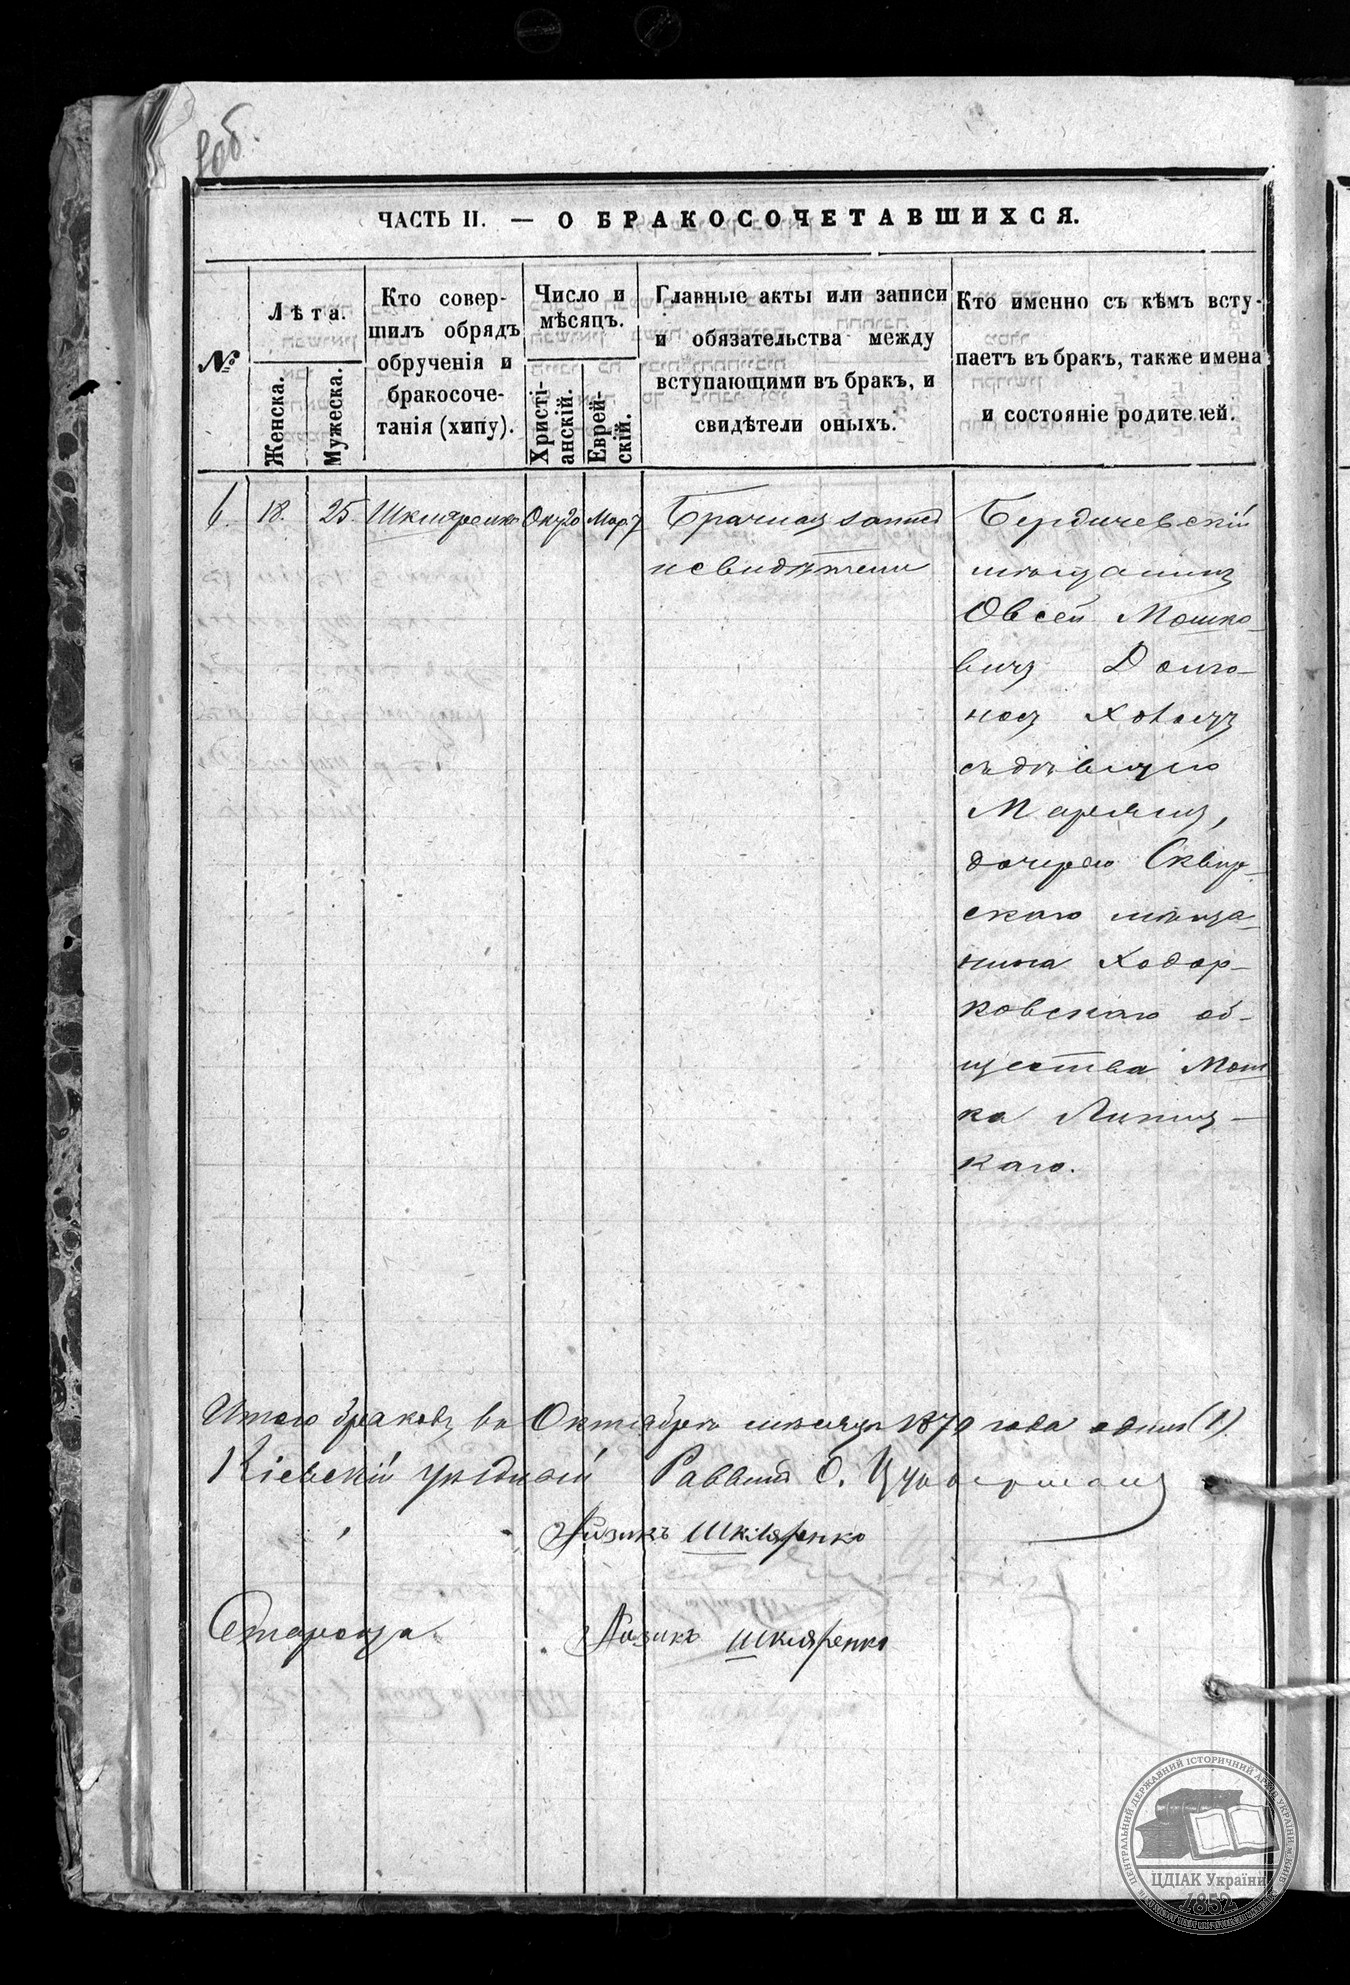 ЧАСТЬ II. — О БРАКОСОЧЕТАВШИХСЯ.
№
Лѣта.
Женска.
Мужеска.
Кто совер-
шилъ обрядъ
обрученія и
бракосоче-
танія (хипу).
Число и
мѣсяцъ.
Христі-
анскій.
Еврей-
скій.
Главные акты или записи
и обязательства между
вступающими въ бракъ, и
свидѣтели оныхъ.
Кто именно съ кѣмъ всту-
паетъ въ бракъ, также имена
и состояніе родителей.
6. 18. 25. Шкляренко Окт 20 Мар. 7
Брачная запись
и свидѣтели
Бердичевскій
мѣщанинъ
Овсей Мошко-
вичъ Долго-
носъ
съ дѣвицею
Маріямъ,
дочерью Сквир-
скаго мѣща-
нина Ходор-
ковскаго об-
щества Мош
ка Липиц-
каго.
Итого браковъ въ Октябрѣ мѣсяцѣ 1879 года одинъ (1)
Кіевскій уѣздный Раввинъ О. Цукерманъ
Айзикъ Шкляренко
Староста Айзикъ Шкляренко
ЦЕНТРАЛЬНИЙ ДЕРЖАВНИЙ ІСТОРИЧНИЙ АРХІВ УКРАЇНИ М.КИЇВ
ЦДІАК України
1852